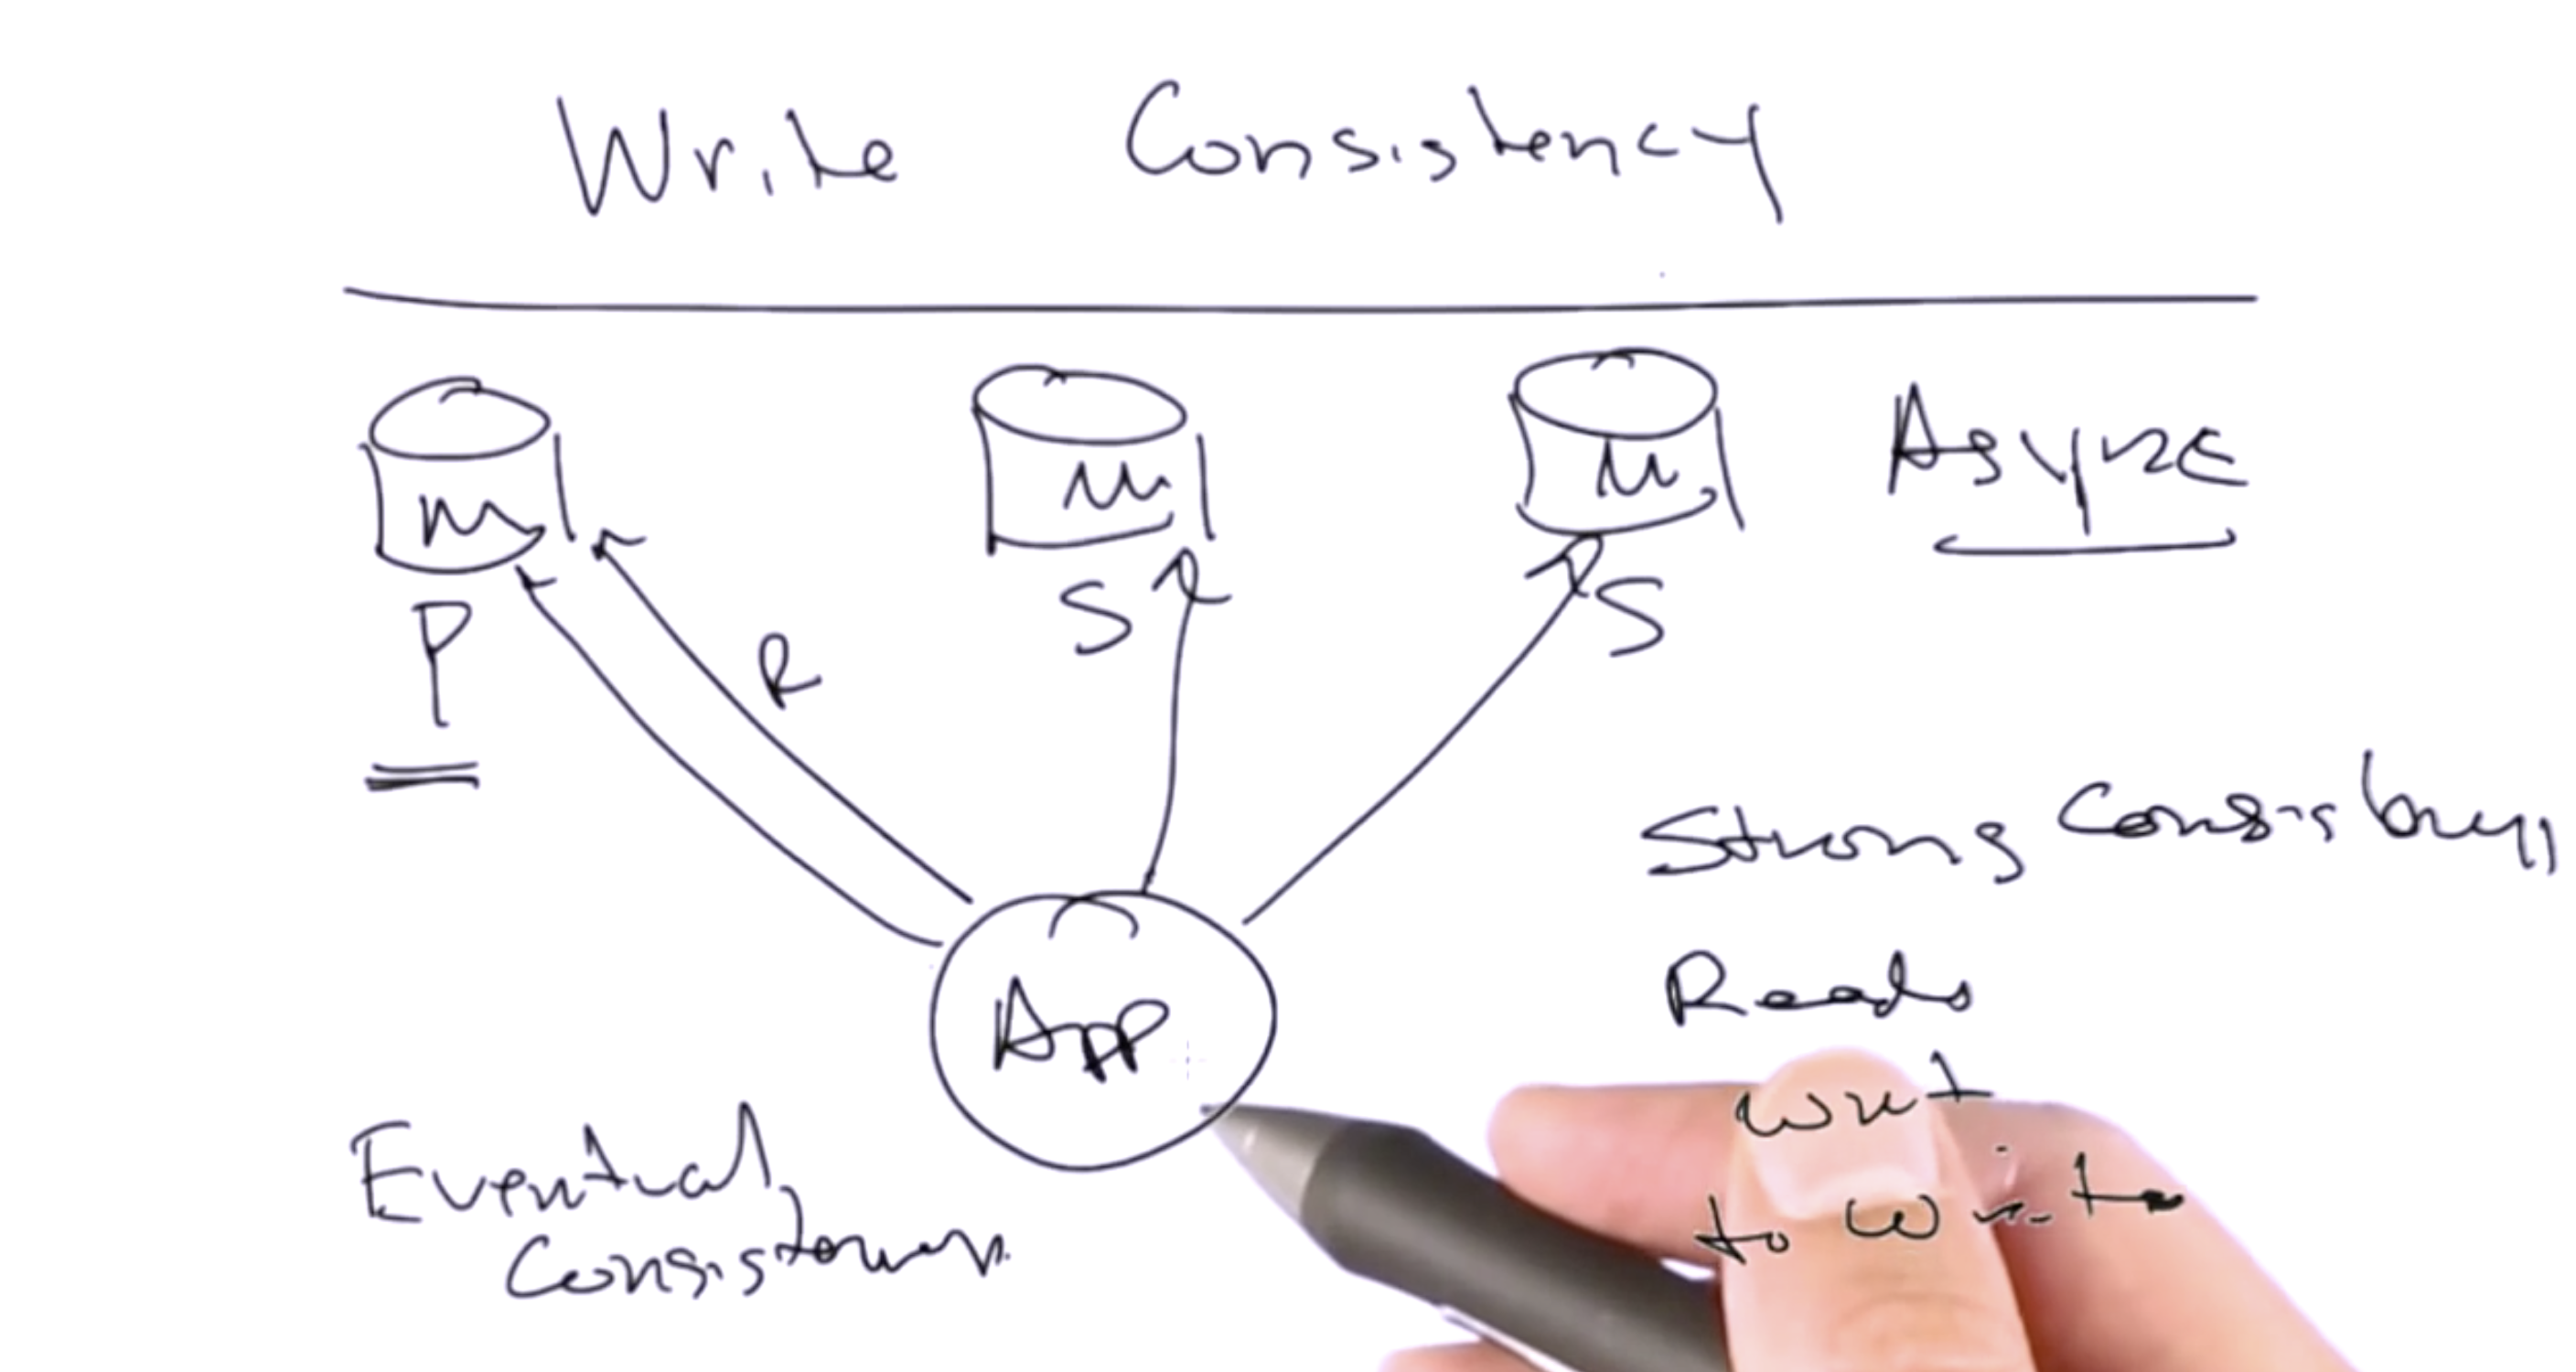 Write Consistency
m m m Async
P S S
R
Strong Consistency
Reads
App wrt
to write
Eventual
Consistency